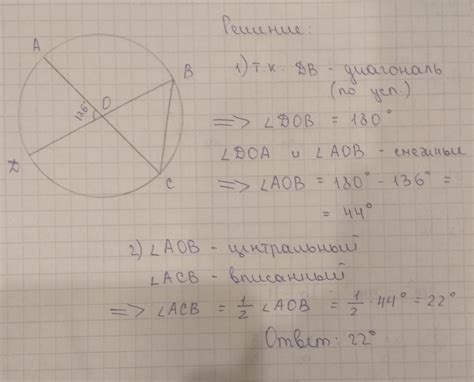 Решение:
A
B
O
136°
D
C
1) т.к. DB - диагональ
(по усл.)
=> ∠DOB = 180°
∠DOA и ∠AOB - смежные
=> ∠AOB = 180° - 136° =
= 44°
2) ∠AOB - центральный
∠ACB - вписанный
=> ∠ACB = 1/2 ∠AOB = 1/2 · 44° = 22°
Ответ: 22°